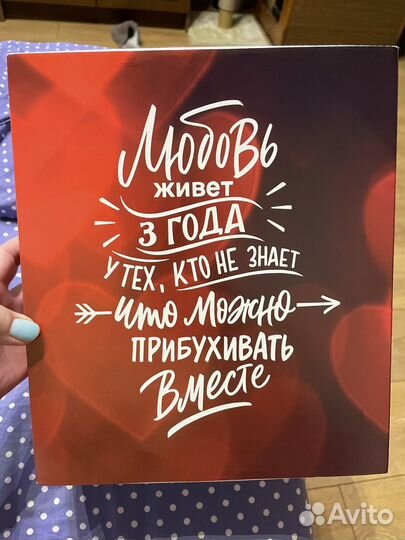 Любовь
живет
3 ГОДА
У ТЕХ, КТО НЕ ЗНАЕТ
что можно
ПРИБУХИВАТЬ
Вместе
Avito